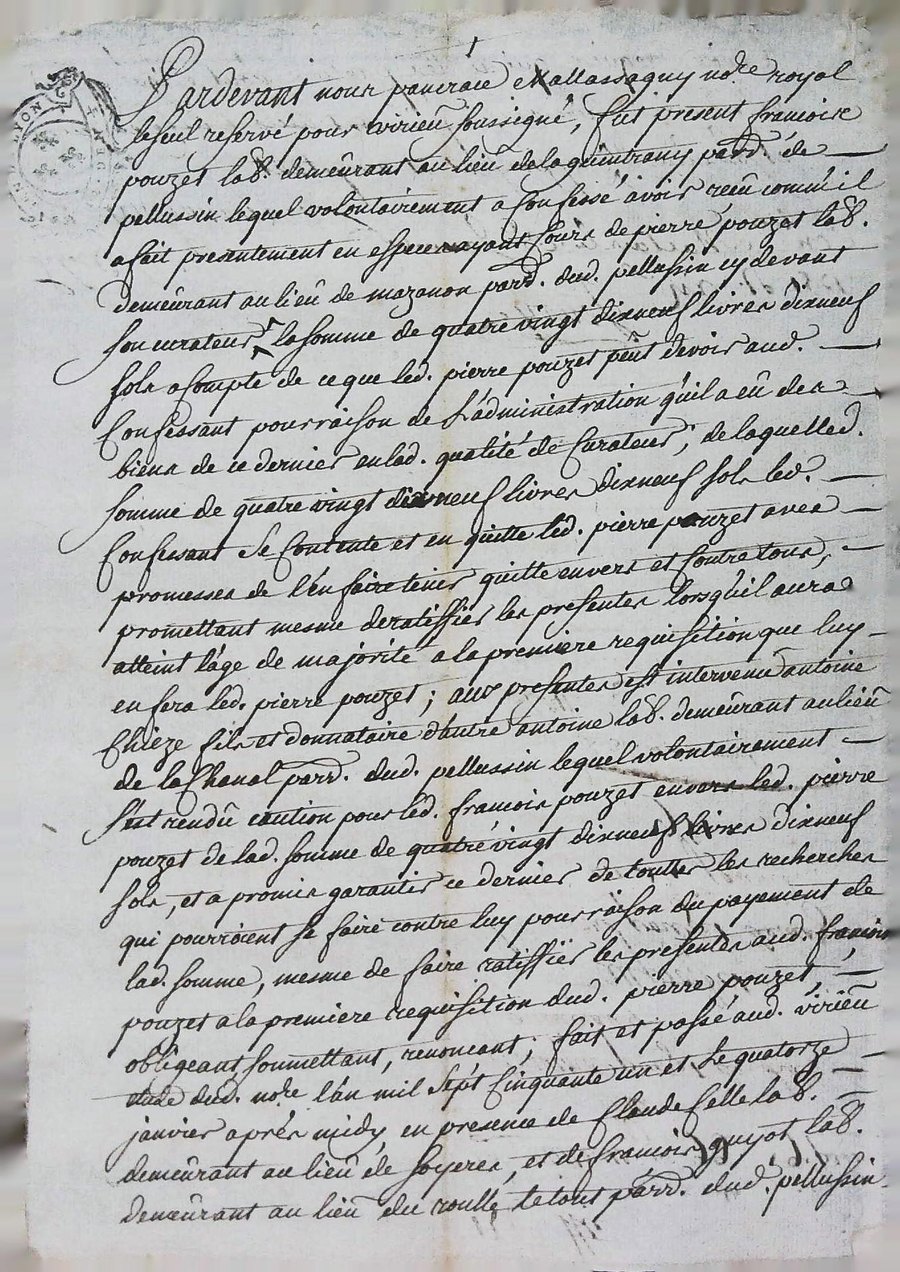 1
LYON
Pardevant nous pancrace Mallassagny no.re royal
le seul reservé pour virieû soussigné, fut present francoise
pouzet lab. demeûrant au lieû de la guintrany parr.e de
pellussin lequel volontairement a Confessé avoir receû comm'il
a fait presentement en especes ayant Cours de pierre pouzet lab.
demeûrant au lieû de mazanon parr.e dud. pellussin cy devant
son curateur la somme de quatre vingt dixneuf livres dixneuf
sols a Compte de ce que led. pierre pouzet peût devoir aud.
Confessant pour raison de L'administration qu'il a eû des
biens de ce dernier en lad. qualité de Curateur; de laquelled.
somme de quatre vingt dixneuf livres dixneuf sols led.
Confessant se Contente et en quitte led. pierre pouzet avec
promesses de l'en faire tenir quitte envers et Contre tous,
promettant mesme de ratiffier les presentes lorsqu'il aura
atteint l'age de majorité a la premiere requisition que luy
en fera led. pierre pouzet; aux presentes est intervenû antoine
Chieze fils et donnataire d'autre antoine lab. demeûrant au lieû
de la Chanal parr.e dud. pellussin lequel volontairement
s'est rendû caution pour led. francois pouzet envers led. pierre
pouzet de lad. somme de quatre vingt dixneuf livres dixneuf
sols, et a promis garantir ce dernier de touttes les recherches
qui pourroient se faire contre luy pour raison du payement de
lad. somme, mesme de faire ratiffier les presentes aud. francois
pouzet a la premiere requisition dud. pierre pouzet,
obligeant, soumettant, renoncant; fait et passé aud. virieû
etude dud. no.re l'an mil sept Cinquante un et le quatorze
janvier aprés midy, en presence de Claude Celle lab.
demeûrant au lieû de soyeres, et de francois guyot lab.
demeûrant au lieû du roulle le tout parr.e dud. pellussin